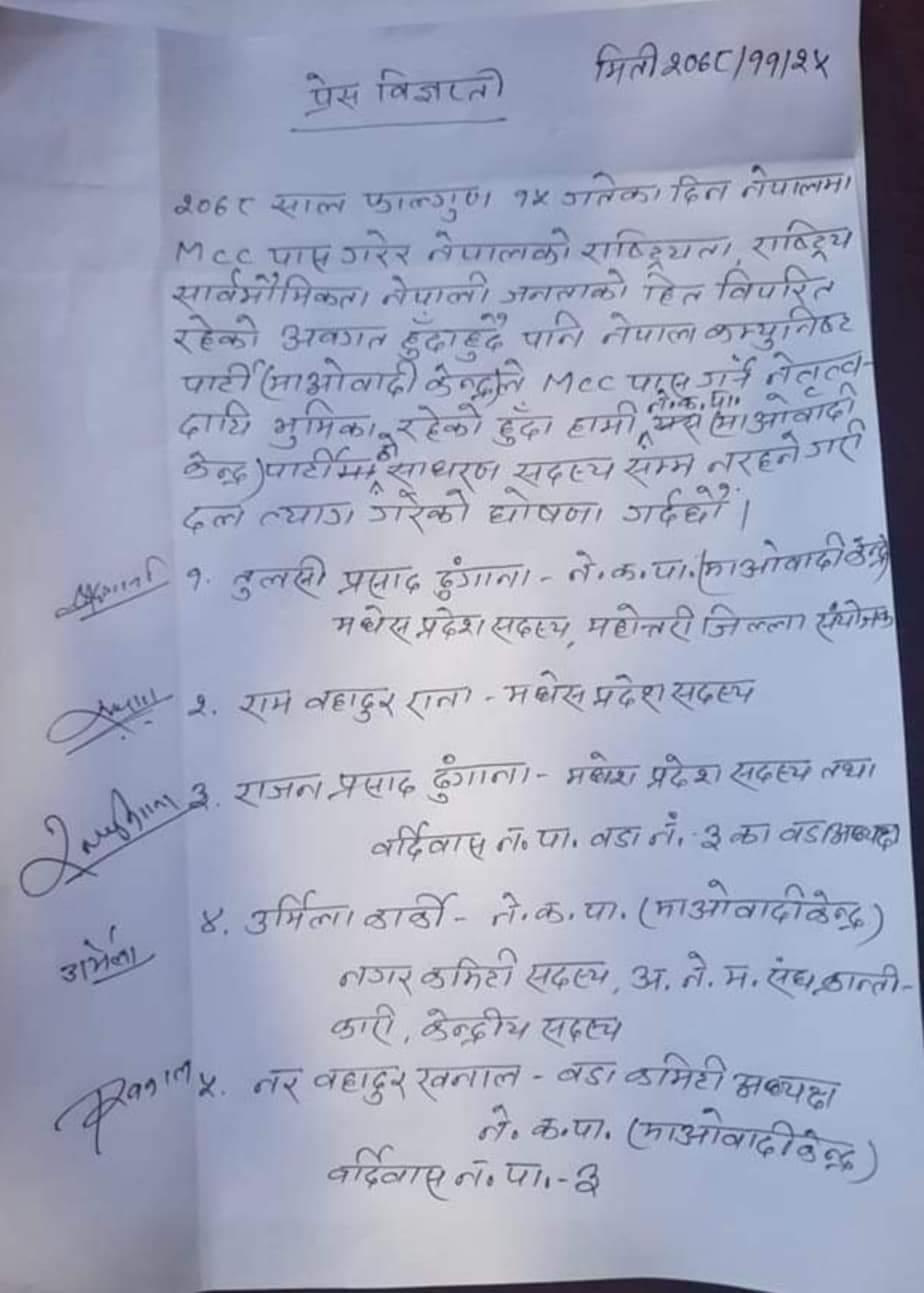 मिती २०७८/११/२५
प्रेस विज्ञप्ती
२०७८ साल फाल्गुण १५ गतेका दिन नेपालमा
MCC पास गरेर नेपालको राष्ट्रियता, राष्ट्रिय
सार्वभौमिकता नेपाली जनताको हित विपरित
रहेको अवगत हुँदाहुँदै पनि नेपाल कम्युनिष्ट
पार्टी (माओवादी केन्द्र)ले MCC पास गर्न नेतृत्व-
दायि भुमिका रहेको हुँदा हामी ने.क.पा. (माओवादी
केन्द्र) पार्टीको साधरण सदस्य सम्म नरहने गरी
दल त्याग गरेको घोषणा गर्दछौं।
१. तुलसी प्रसाद ढुंगाना - ने.क.पा. (माओवादी केन्द्र)
मधेस प्रदेश सदस्य, महोत्तरी जिल्ला संयोजक
२. राम वहादुर राना - मधेस प्रदेश सदस्य
३. राजन प्रसाद ढुंगाना - मधेश प्रदेश सदस्य तथा
वर्दिवास न.पा. वडा नं. - ३ का वडा अध्यक्ष
४. उर्मिला कार्की - ने.क.पा. (माओवादी केन्द्र)
उर्मिला
नगर कमिटी सदस्य, अ.ने.म. संघ, क्रान्ती-
कारी, केन्द्रीय सदस्य
५. नर वहादुर खनाल - वडा कमिटी अध्यक्ष
ने.क.पा. (माओवादी केन्द्र)
वर्दिवास न.पा. - ३